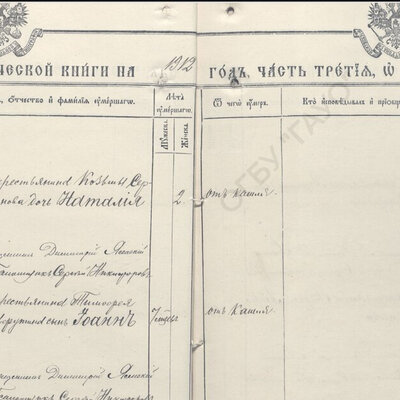 ческой кни́ги на 1912 го́дъ, ча́сть тре́тїѧ, ѡ҆
ѻ҆́тчество и҆ фами́лїѧ ᲂу҆ме́ршагѡ.
Лѣ́та ᲂу҆ме́ршагѡ.
Мꙋ́жеска. Же́нска.
Ѿ чегѡ̀ ᲂу҆́мре.
Кто̀ и҆сповѣ́дывалъ и҆ прїѡбщ
крестьянина Козьмы Сер
нова дочь Наталія 2. отъ кашля
Димитрій
Сергѣй Никифоровъ
крестьянина Тимоѳея
сынъ Іоаннъ отъ кашля
Димитрій
Сергѣй Никифоровъ
ОГБУ "ГАКО"